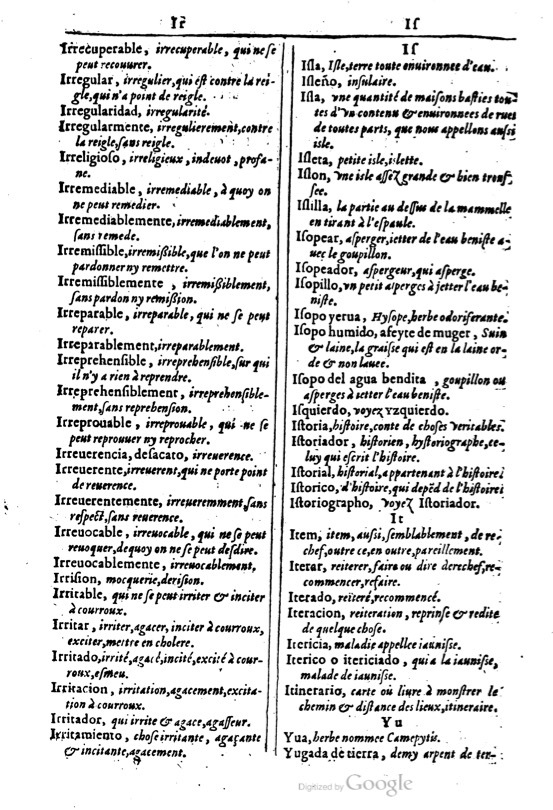 Ir
Irrecuperable, irrecuperable, qui ne se
peut recouurer.
Irregular, irregulier, qui est contre la rei-
gle, qui n'a point de reigle.
Irregularidad, irregularité.
Irregularmente, irregulierement, contre
la reigle, sans reigle.
Irreligioso, irreligieux, indeuot, profa-
ne.
Irremediable, irremediable, à quoy on
ne peut remedier.
Irremediablemente, irremediablement,
sans remede.
Irremissible, irremißible, que l'on ne peut
pardonner ny remettre.
Irremissiblemente, irremißiblement,
sans pardon ny remißion.
Irreparable, irreparable, qui ne se peut
reparer.
Irreparablement, irreparablement.
Irreprehensible, irreprehensible, sur qui
il n'y a rien à reprendre.
Irreprehensiblement, irreprehensible-
ment, sans reprehension.
Irreprouable, irreprouable, qui ne se
peut reprouuer ny reprocher.
Irreuerencia, desacato, irreuerence.
Irreuerente, irreuerent, qui ne porte point
de reuerence.
Irreuerentemente, irreueremment, sans
respect, sans reuerence.
Irreuocable, irreuocable, qui ne se peut
reuoquer, dequoy on ne se peut desdire.
Irreuocablemente, irreuocablement.
Irrision, mocquerie, derision.
Irritable, qui ne se peut irriter & inciter
à courroux.
Irritar, irriter, agacer, inciter à courroux,
exciter, mettre en cholere.
Irritado, irrité, agacé, incité, excité à cour-
roux, esmeu.
Irritacion, irritation, agacement, excita-
tion à courroux.
Irritador, qui irrite & agace, agasseur.
Irritamiento, chose irritante, agaçante
& incitante, agacement.
Is
Is
Isla, Isle, terre toute enuironnee d'eau.
Isleño, insulaire.
Isla, vne quantité de maisons basties tou-
tes d'vn contenu & enuironnees de rues
de toutes parts, que nous appellons aussi
isle.
Isleta, petite isle, islette.
Islon, vne isle assez grande & bien trous-
see.
Islilla, la partie au dessus de la mammelle
en tirant à l'espaule.
Isopear, asperger, ietter de l'eau beniste a-
uec le goupillon.
Isopeador, aspergeur, qui asperge.
Isopillo, vn petit asperges à ietter l'eau be-
niste.
Isopo yerua, Hysope, herbe odoriferante.
Isopo humido, afeyte de muger, Suin
& laine, la graisse qui est en la laine or-
de & non lauee.
Isopo del agua bendita, goupillon ou
asperges à ietter l'eau beniste.
Isquierdo, voyez Yzquierdo.
Istoria, histoire, conte de choses veritables.
Istoriador, historien, hystoriographe, ce-
luy qui escrit l'histoire.
Istorial, historial, appartenant à l'histoire.
Istorico, d'histoire, qui depẽd de l'histoire
Istoriographo, voyez Istoriador.
It
Item, item, aussi, semblablement, de re-
chef, outre ce, en outre, pareillement.
Iterar, reiterer, faire ou dire derechef, re-
commencer, refaire.
Iterado, reïteré, recommencé.
Iteracion, reiteration, reprinse & redite
de quelque chose.
Itericia, maladie appellee iaunisse.
Iterico o itericiado, qui a la iaunisse,
malade de iaunisse.
Itinerario, carte où liure à monstrer le
chemin & distance des lieux, itineraire.
Yu
Yua, herbe nommee Camepytis.
Yugada de tierra, demy arpent de ter-
Digitized by Google